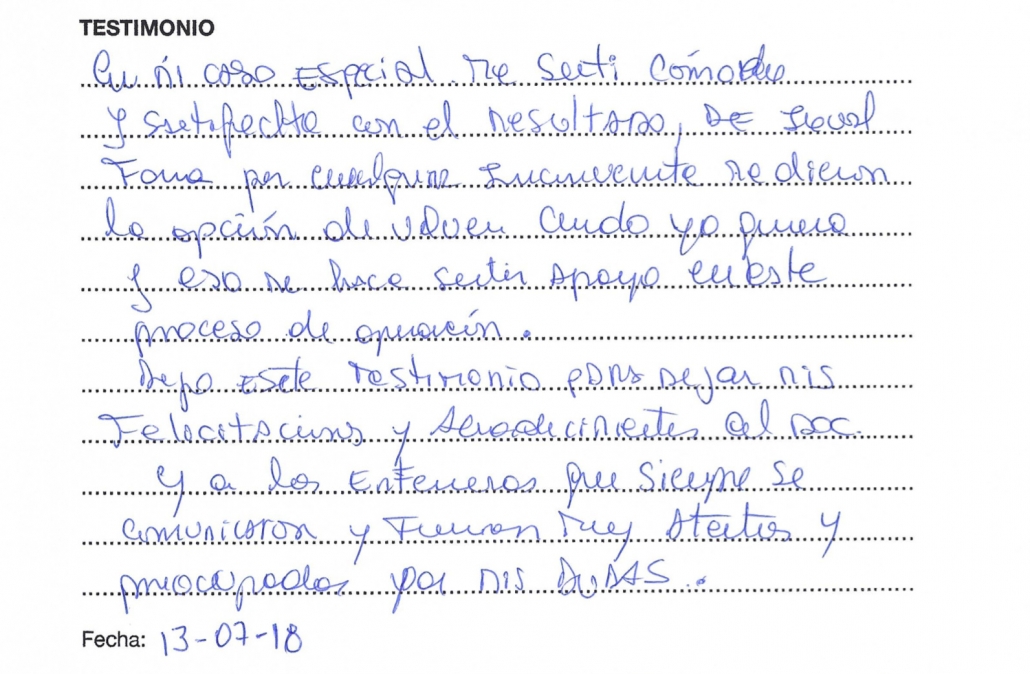 TESTIMONIO
En mi caso Especial me Sentí Cómoda
y satisfecha con el Resultado, DE Igual
Forma por cualquier Inconveniente me dieron
la opción de volver Cuando yo quiera
y eso me hace sentir Apoyo en este
proceso de operación.
Dejo Este Testimonio para Dejar mis
Felicitaciones y Agradecimientos al Doc.
y a los Enfermeros que Siempre se
comunicaron y Fueron muy Atentos y
preocupados por mis DuDAS.
Fecha: 13-07-18